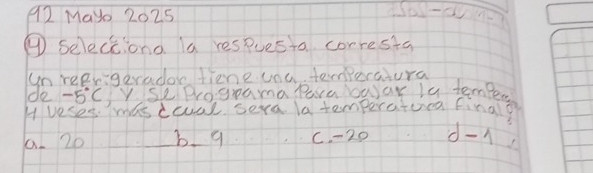 12 Mayo 2025
④ Selecciona la respuesta corresta
Un reFrigerador tiene una temperatura
de -5°C, y Se Programa Para bajar la temper
4 veses mas cual sera la temperatura final?
a. 20 b. 9 c. -20 d - 1